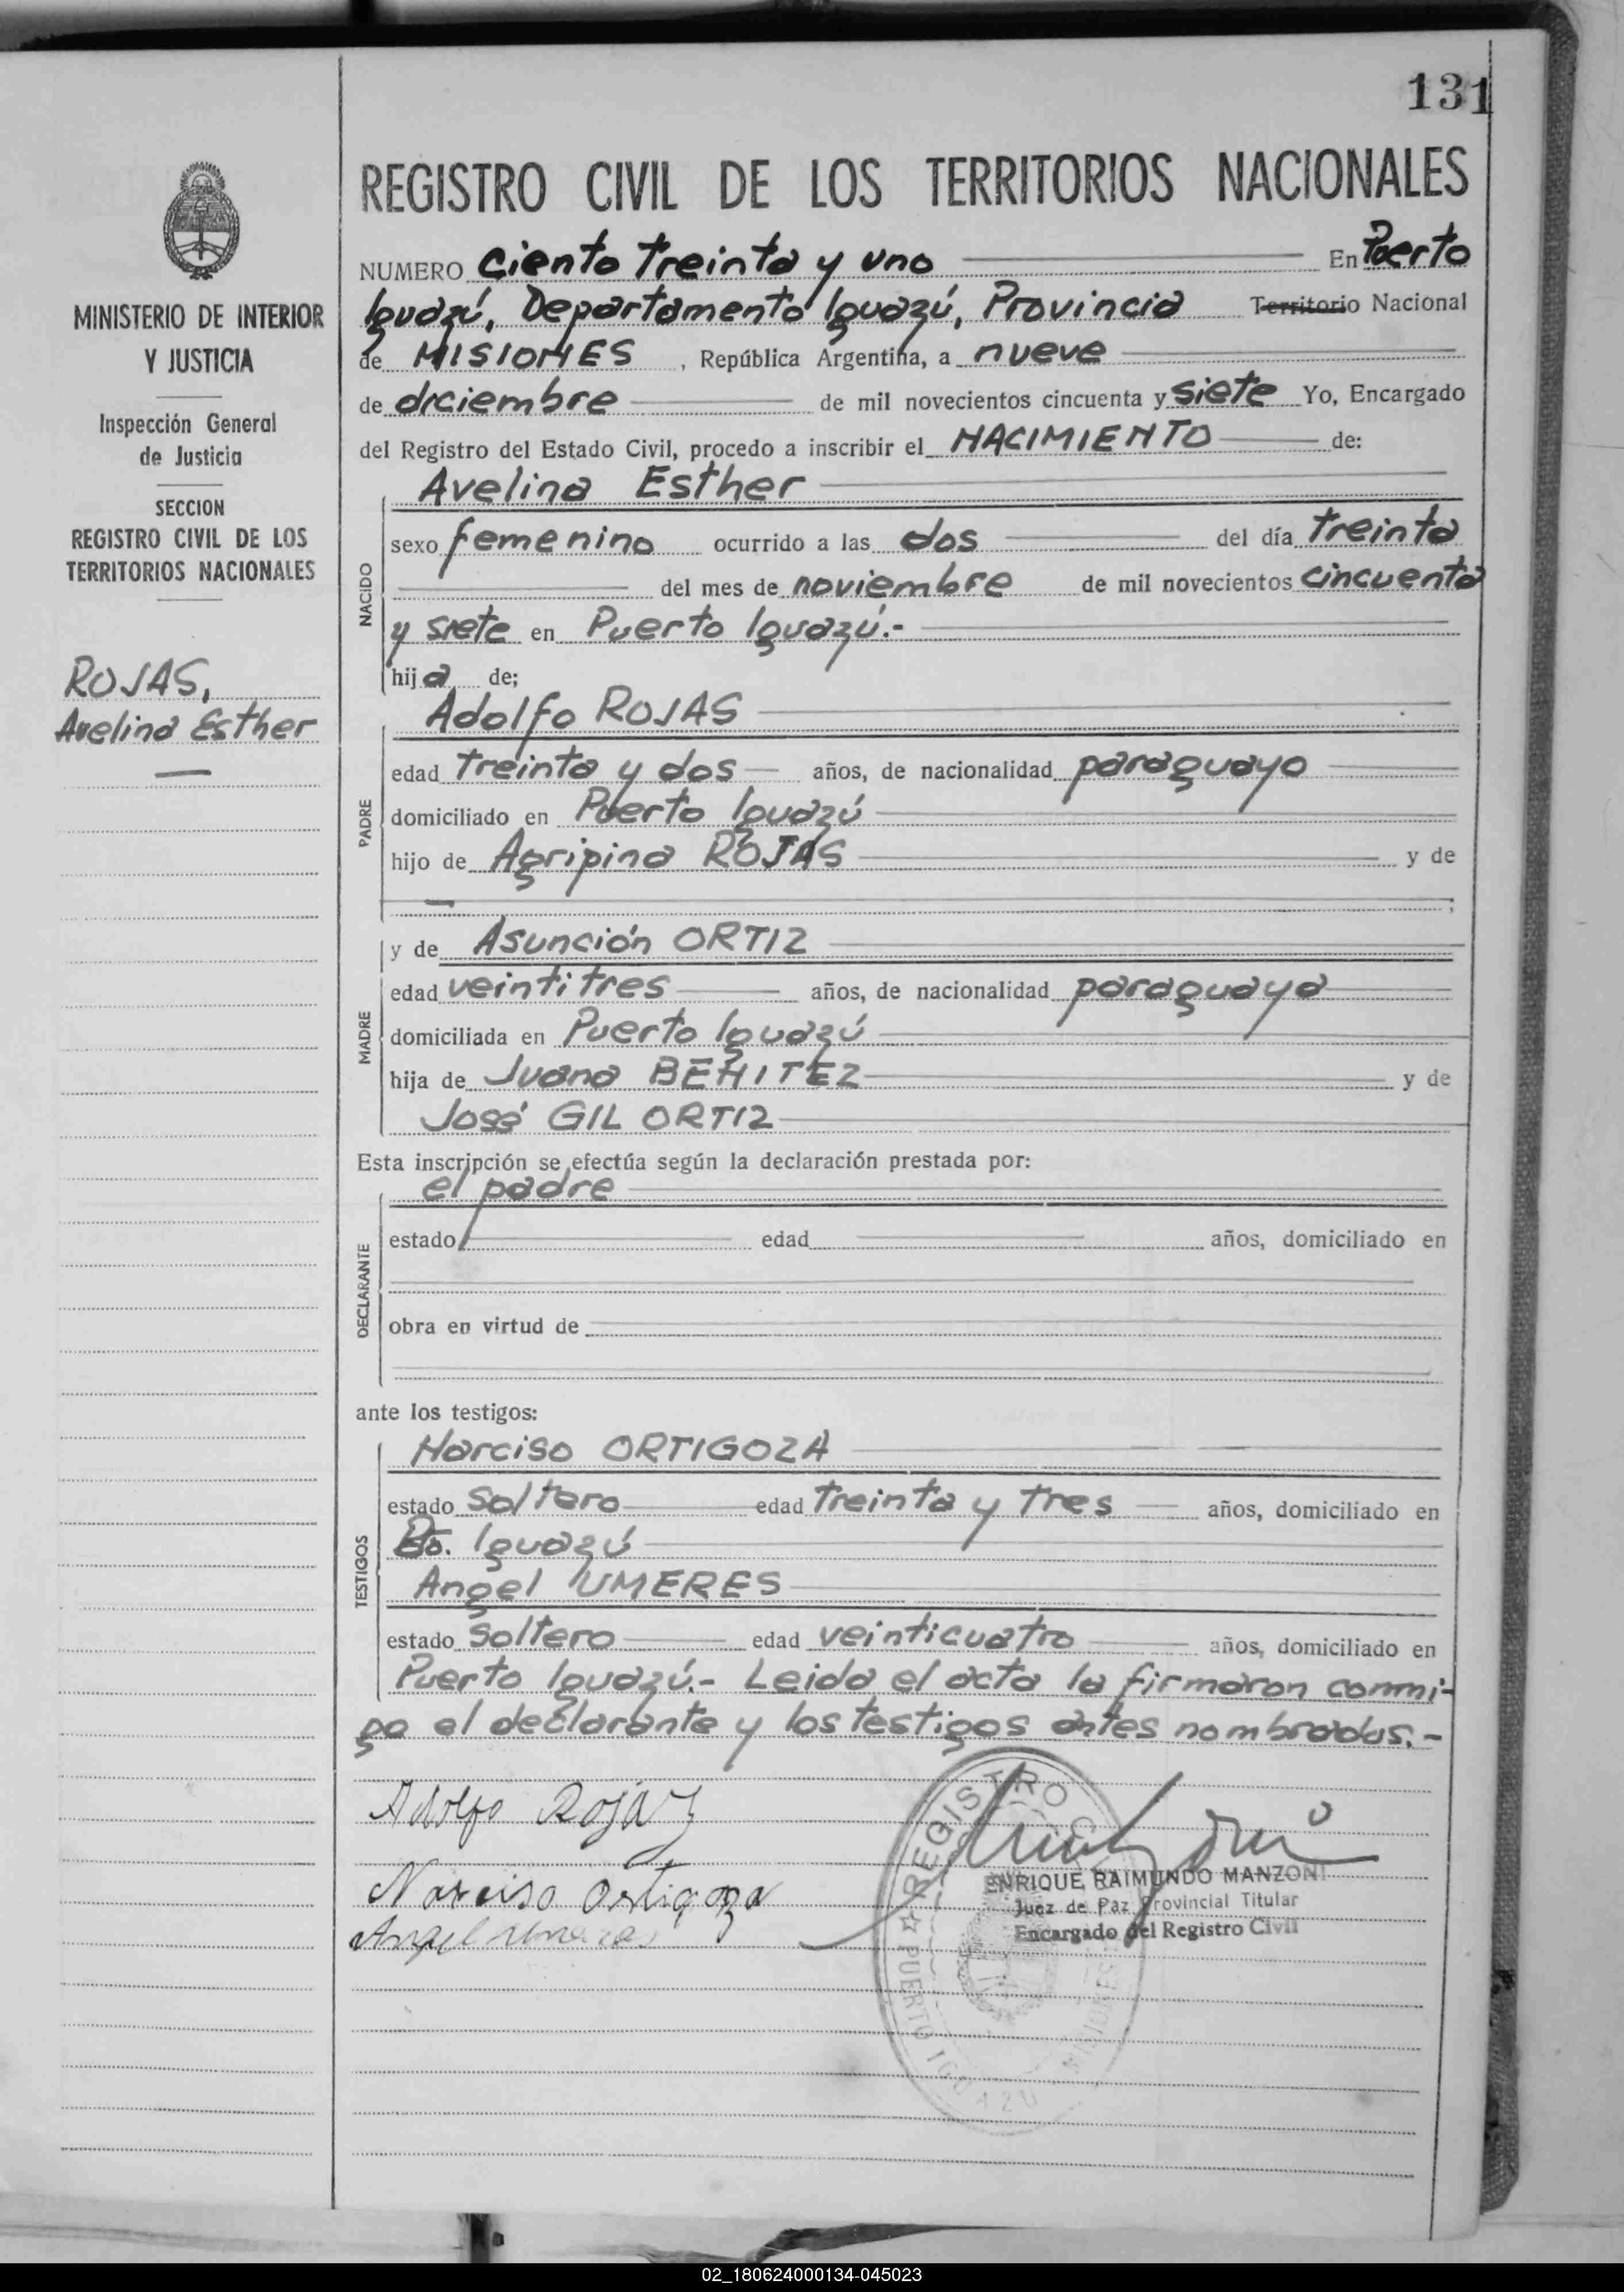 131
REGISTRO CIVIL DE LOS TERRITORIOS NACIONALES
MINISTERIO DE INTERIOR
Y JUSTICIA
Inspección General
de Justicia
SECCION
REGISTRO CIVIL DE LOS
TERRITORIOS NACIONALES
ROJAS,
Avelina Esther
NUMERO Ciento treinta y uno En Puerto
Iguazú, Departamento Iguazú, Provincia Territorio Nacional
de MISIONES, República Argentina, a nueve
de diciembre de mil novecientos cincuenta y siete Yo, Encargado
del Registro del Estado Civil, procedo a inscribir el NACIMIENTO de:
NACIDO
Avelina Esther
sexo femenino ocurrido a las dos del día treinta
del mes de noviembre de mil novecientos cincuenta
y siete en Puerto Iguazú.-
hija de;
PADRE
Adolfo ROJAS
edad treinta y dos años, de nacionalidad paraguayo
domiciliado en Puerto Iguazú
hijo de Agripina ROJAS y de
;
MADRE
y de Asunción ORTIZ
edad veintitres años, de nacionalidad paraguaya
domiciliada en Puerto Iguazú
hija de Juana BENITEZ y de
José GIL ORTIZ
Esta inscripción se efectúa según la declaración prestada por:
DECLARANTE
el padre
estado edad años, domiciliado en
obra en virtud de
ante los testigos:
TESTIGOS
Narciso ORTIGOZA
estado soltero edad treinta y tres años, domiciliado en
Pto. Iguazú
Angel UMERES
estado soltero edad veinticuatro años, domiciliado en
Puerto Iguazú.- Leida el acta la firmaron conmi-
go el declarante y los testigos antes nombrados.-
Adolfo Rojaz
Narciso Ortigoza
Angel Umeres
REGISTRO CIVIL
PUERTO IGUAZU MISIONES
ENRIQUE RAIMUNDO MANZONI
Juez de Paz Provincial Titular
Encargado del Registro Civil
02_180624000134-045023